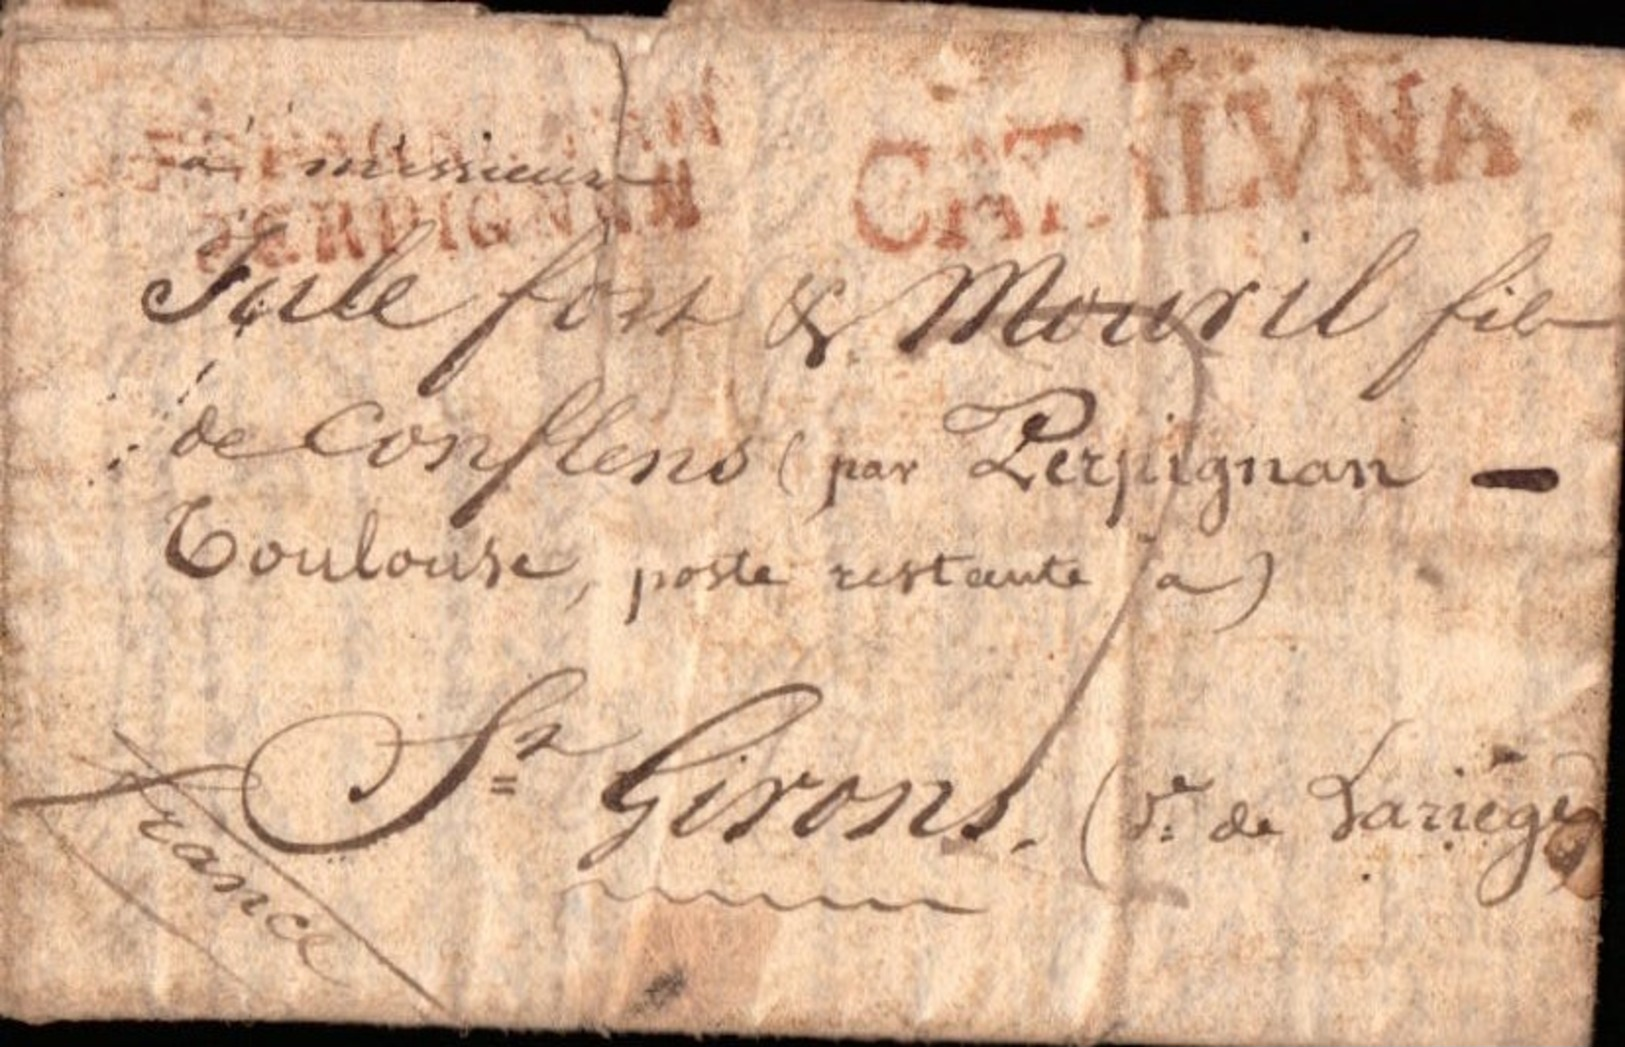 CATALVNA
à messieurs
PERPIGNAN
fort & Mouril fils
de Conflens (par Perpignan -
Toulouse, poste restante à)
St Girons. (dt de Lariège
france